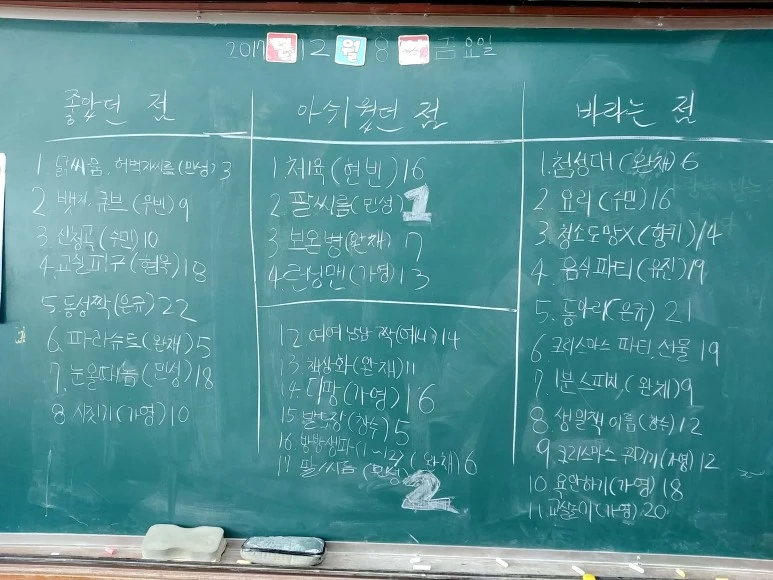 2017 년 12 월 8 일 금요일
좋았던 점
1 닭싸움, 허벅지씨름(민성) 3
2 뱃지, 큐브(우빈) 9
3. 신청곡(수민) 10
4. 교실피구(현우) 18
5. 동성짝(은규) 22
6. 파라슈트(완채) 5
7. 눈올때놀(민성) 18
8 시짓기(가영) 10
아쉬웠던 점
1 체육(현빈) 16
2 팔씨름(민성) 1
3 보온병(완채) 7
4. 런닝맨(가영) 13
바라는 점
1. 첨성대(완채) 6
2. 요리(수민) 16
3 청소도망X(향기) 14
4. 음식파티(유진) 19
5. 동아리(은규) 21
6 크리스마스 파티, 산물 19
7. 1분스피치, (완채) 9
8 생일책 이름(창수) 12
9 크리스마스 꾸미기(가영) 12
10 욕안하기(가영) 18
11 교실놀이(가영) 20
12 여여 남남 짝(여니) 14
13 책상화(완채) 11
14. 디팡(가영) 16
15 발드장(창수) 5
16. (완채) 6
17 팔씨름(민성) 2